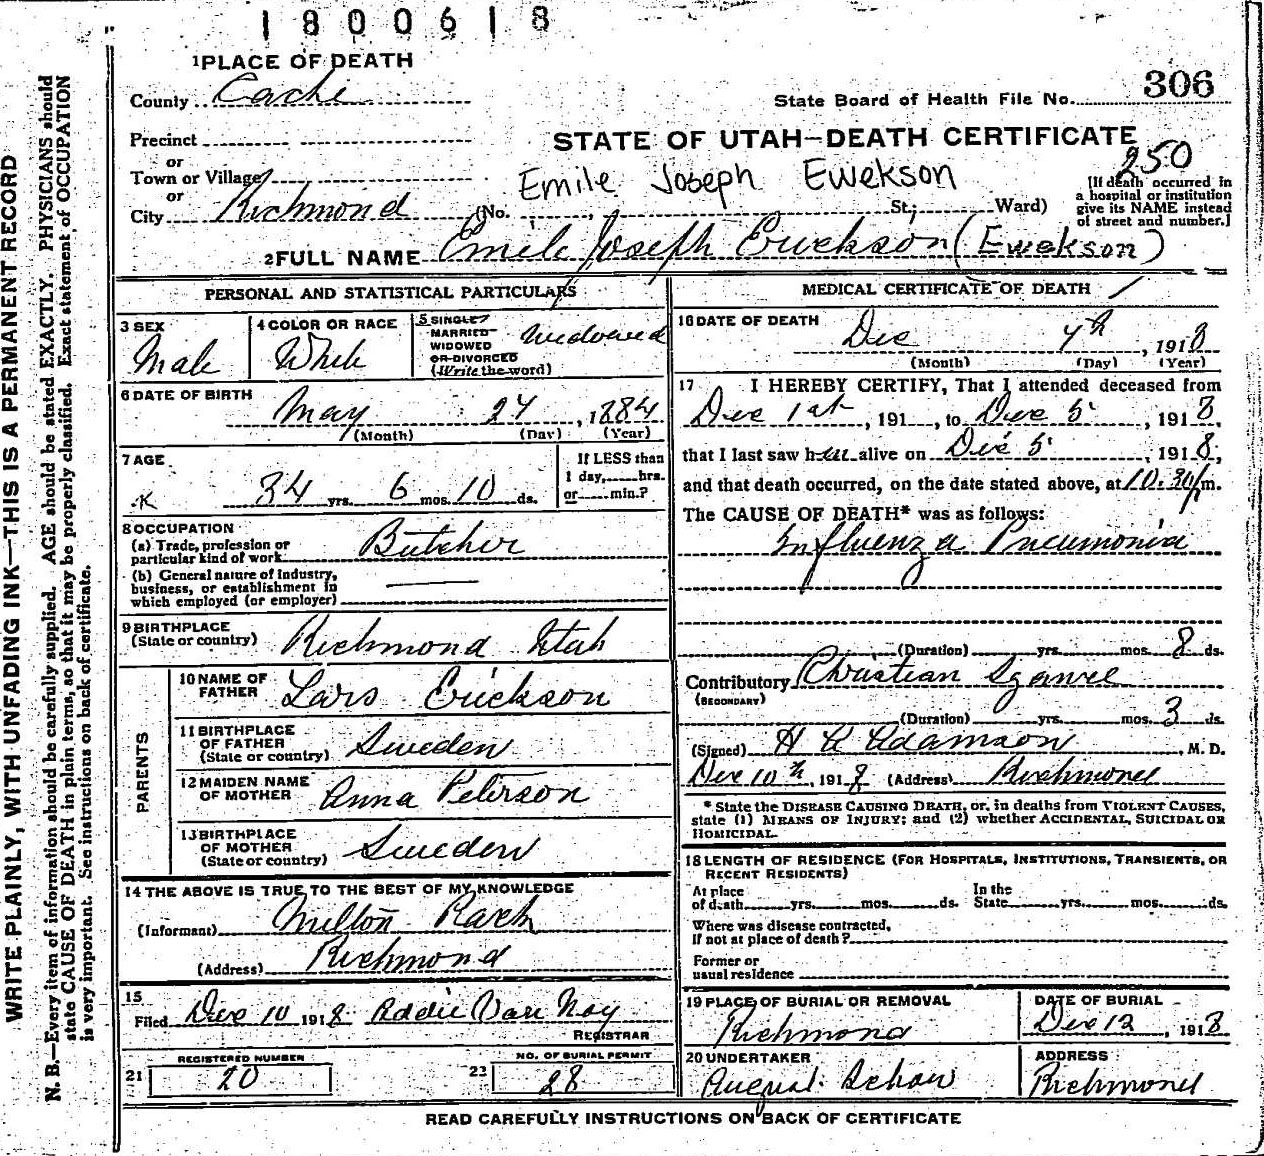 1800618
1 PLACE OF DEATH
County Cache
State Board of Health File No. 306
Precinct
STATE OF UTAH—DEATH CERTIFICATE
or
Town or Village
or
City Richmond (No. , St; Ward)
Emile Joseph Ewekson
250
[If death occurred in
a hospital or institution
give its NAME instead
of street and number.]
2 FULL NAME Emile Joseph Ewekson (Ewekson)
PERSONAL AND STATISTICAL PARTICULARS
3 SEX
Male
4 COLOR OR RACE
White
5 SINGLE
MARRIED
WIDOWED
OR DIVORCED
(Write the word)
Widowed
6 DATE OF BIRTH
May 27, 1884
(Month) (Day) (Year)
7 AGE
34 yrs. 6 mos. 10 ds.
If LESS than
1 day, hrs.
or min.?
8 OCCUPATION
(a) Trade, profession or
particular kind of work Butcher
(b) General nature of Industry,
business, or establishment in
which employed (or employer)
9 BIRTHPLACE
(State or country) Richmond Utah
PARENTS
10 NAME OF
FATHER Lars Erickson
11 BIRTHPLACE
OF FATHER
(State or country) Sweden
12 MAIDEN NAME
OF MOTHER Anna Peterson
13 BIRTHPLACE
OF MOTHER
(State or country) Sweden
14 THE ABOVE IS TRUE TO THE BEST OF MY KNOWLEDGE
(Informant) Milton
(Address) Richmond
15
Filed Dec 10 1918 Addie Van Noy
REGISTRAR
REGISTERED NUMBER
21 20
NO. OF BURIAL PERMIT
22 28
MEDICAL CERTIFICATE OF DEATH
16 DATE OF DEATH
Dec 7th, 1918
(Month) (Day) (Year)
17 I HEREBY CERTIFY, That I attended deceased from
Dec 1st, 191 , to Dec 5, 1918,
that I last saw h alive on Dec 5, 1918,
and that death occurred, on the date stated above, at 10.30 m.
The CAUSE OF DEATH* was as follows:
Influenza Pneumonia
(Duration) yrs. mos. 8 ds.
Contributory
(SECONDARY)
(Duration) yrs. mos. 3 ds.
(Signed) Adamson, M. D.
Dec 10th, 1918 (Address) Richmond
* State the DISEASE CAUSING DEATH, or, in deaths from VIOLENT CAUSES,
state (1) MEANS OF INJURY; and (2) whether ACCIDENTAL, SUICIDAL OR
HOMICIDAL.
18 LENGTH OF RESIDENCE (FOR HOSPITALS, INSTITUTIONS, TRANSIENTS, OR
RECENT RESIDENTS)
At place
of death yrs. mos. ds.
In the
State yrs. mos. ds.
Where was disease contracted,
If not at place of death?
Former or
usual residence
19 PLACE OF BURIAL OR REMOVAL
Richmond
DATE OF BURIAL
Dec 12, 1918
20 UNDERTAKER
August
ADDRESS
Richmond
READ CAREFULLY INSTRUCTIONS ON BACK OF CERTIFICATE
WRITE PLAINLY, WITH UNFADING INK—THIS IS A PERMANENT RECORD
N. B.—Every item of information should be carefully supplied. AGE should be stated EXACTLY. PHYSICIANS should
state CAUSE OF DEATH in plain terms, so that it may be properly classified. Exact statement of OCCUPATION
is very important. See instructions on back of certificate.